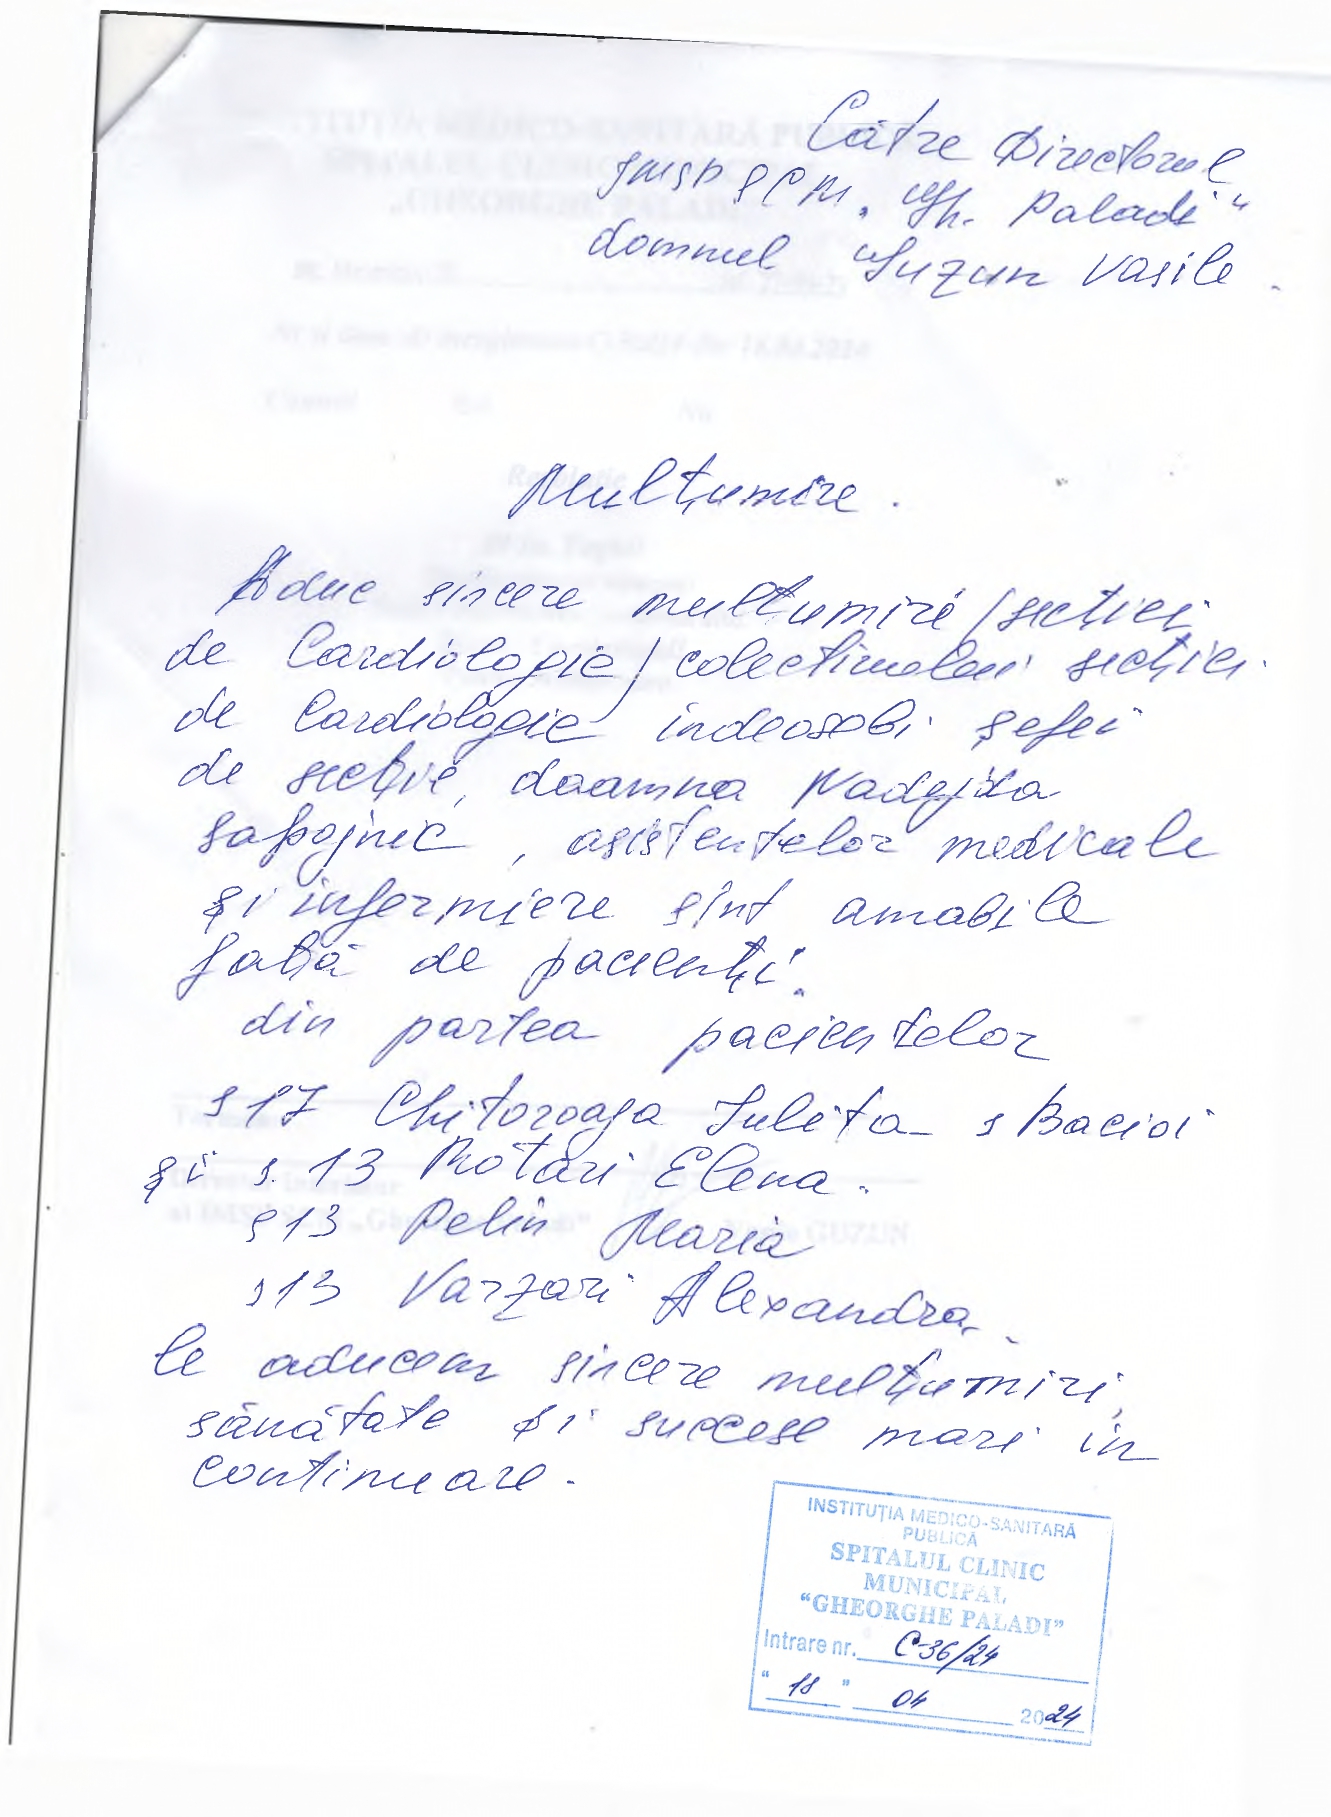 Către Directorul
IMSP SCM „Gh. Paladi"
domnul Guzun Vasile.
Mulțumire.
Aduc sincere mulțumiri / secției
de Cardiologie / colectivului secției
de Cardiologie îndeosebi șefei
de secție, doamna Nadejda
Sapojnic, asistentelor medicale
și infermiere sînt amabile
față de pacienți.
din partea pacientelor
s 17 Chitoroaga Iulita s Bacioi
și s. 13 Rotari Elena.
s 13 Pelin Maria
s 13 Varzari Alexandra.
le aducem sincere mulțumiri,
sănătate și succese mari în
continuare.
INSTITUȚIA MEDICO-SANITARĂ
PUBLICĂ
SPITALUL CLINIC
MUNICIPAL
"GHEORGHE PALADI"
Intrare nr. C-36/24
"18" 04 2024